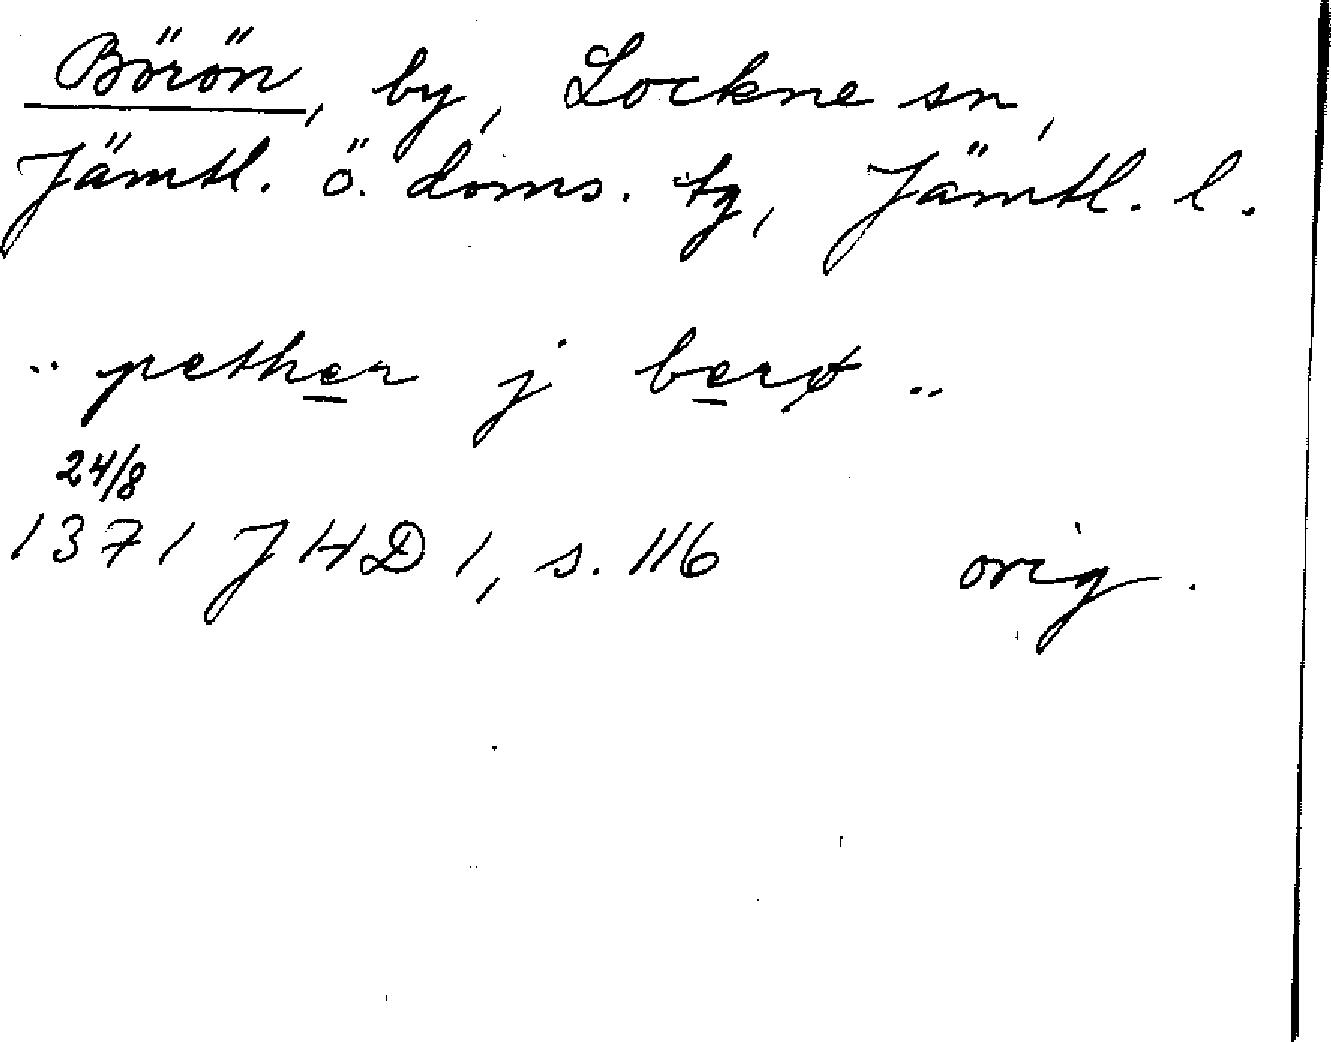 Börön, by, Lockne sn,
Jämtl. ö. doms. tg, Jämtl. l.
.. pether j berø ..
24/8
1371 JHD 1, s. 116 orig.